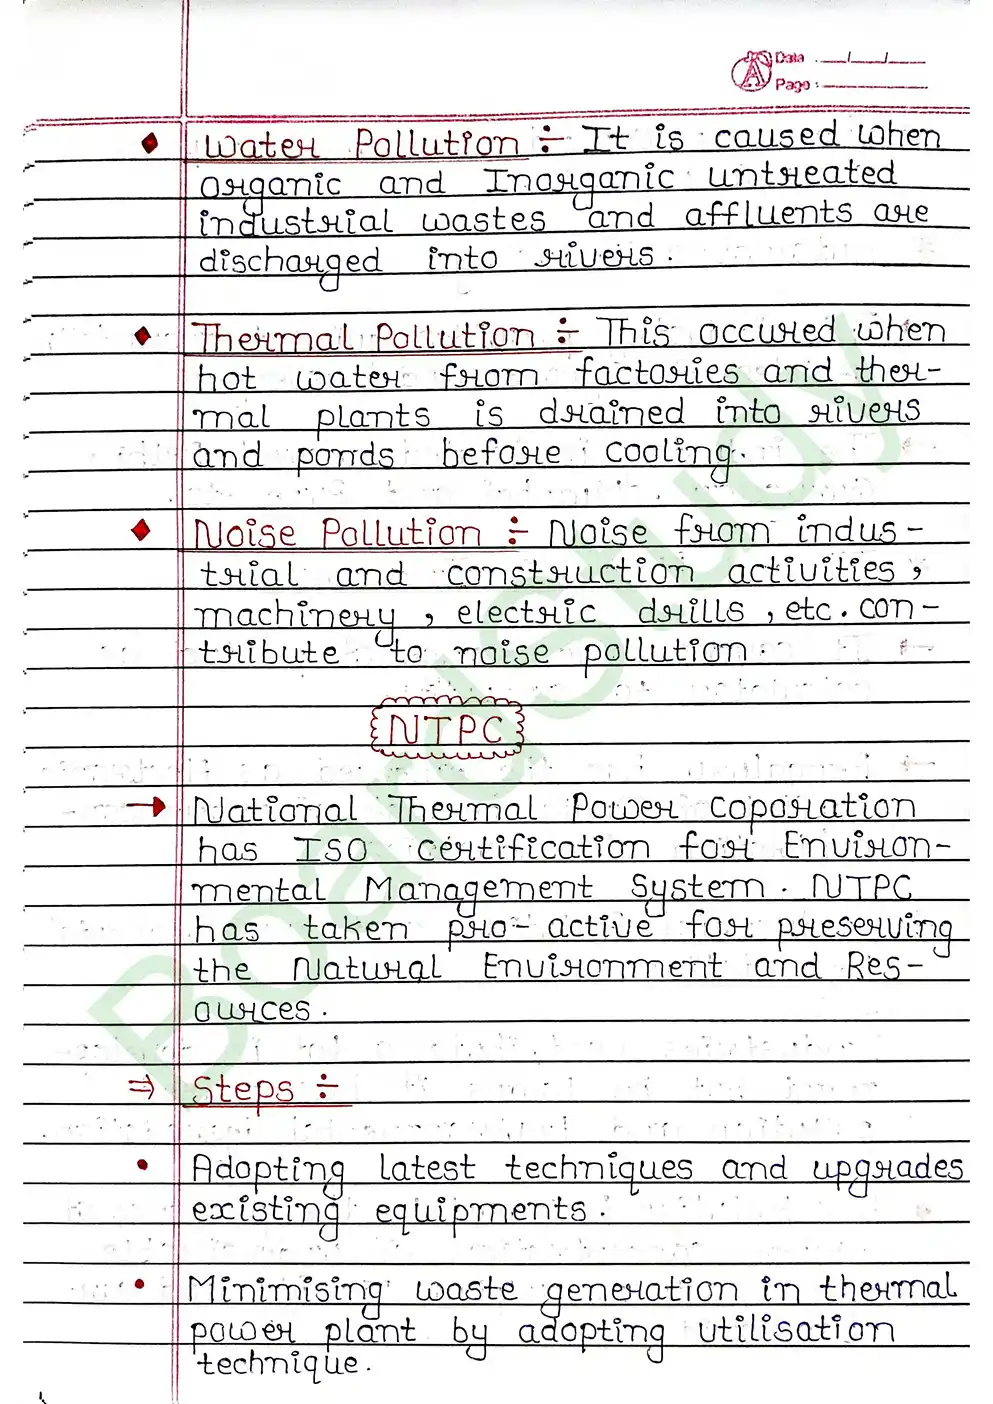 Data : __/__/__
Page : ______
♦ Water Pollution ÷ It is caused when
organic and Inorganic untreated
industrial wastes and affluents are
discharged into rivers.
♦ Thermal Pollution ÷ This occured when
hot water from factories and ther-
mal plants is drained into rivers
and ponds before cooling.
♦ Noise Pollution ÷ Noise from indus-
trial and construction activities,
machinery, electric drills, etc. con-
tribute to noise pollution.
NTPC
→ National Thermal Power coporation
has ISO certification for Environ-
mental Management System. NTPC
has taken pro-active for preserving
the Natural Environment and Res-
ources.
⇒ Steps ÷
• Adopting latest techniques and upgrades
existing equipments.
• Minimising waste generation in thermal
power plant by adopting utilisation
technique.
BoardStudy